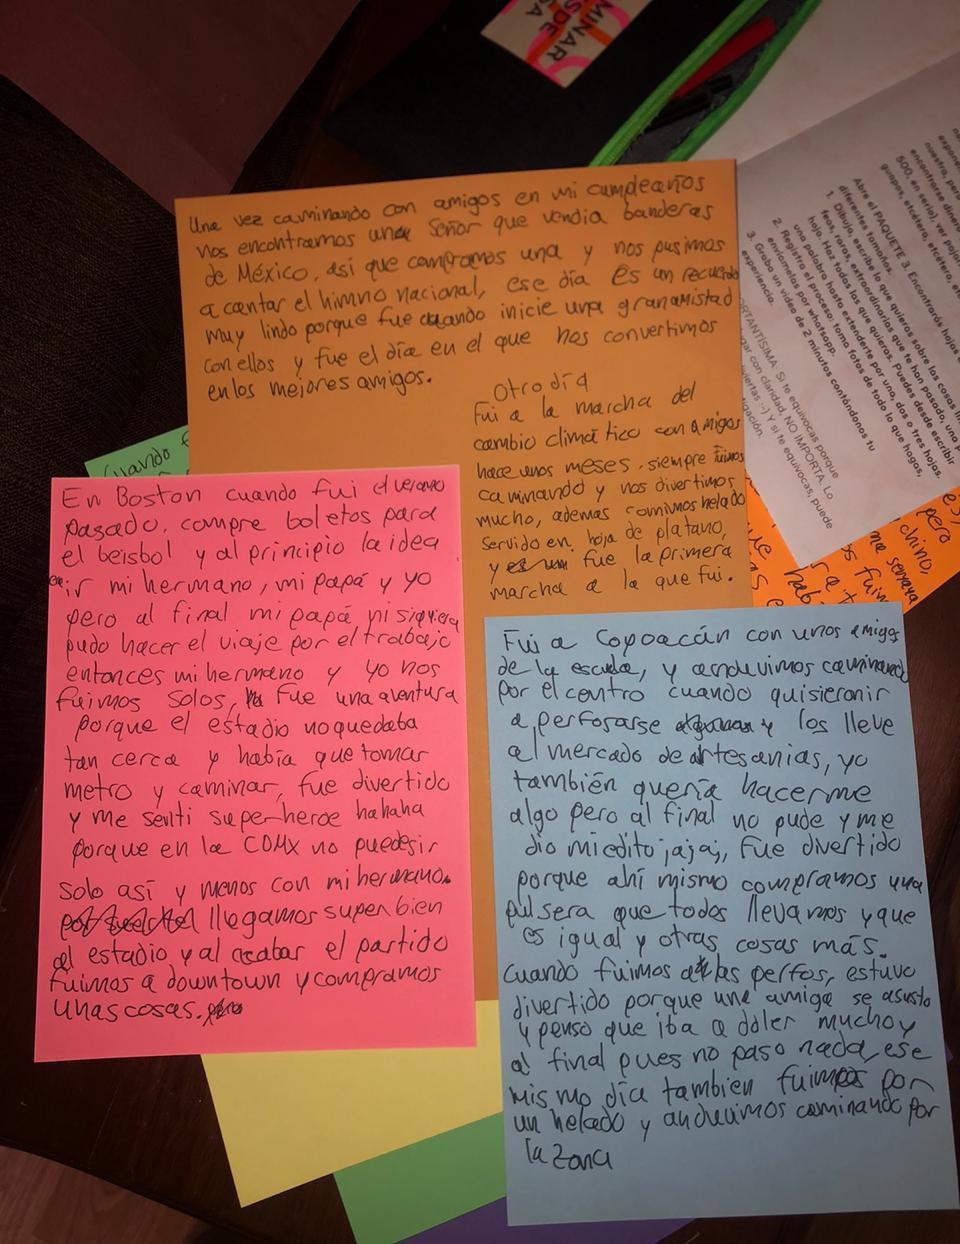 MINAR
DESDE
Una vez caminando con amigos en mi cumpleaños
nos encontramos una señor que vendia banderas
de México, así que compramos una y nos pusimos
a cantar el himno nacional, ese día es un recuerdo
muy lindo porque fue cuando inicie una gran amistad
con ellos y fue el día en el que nos convertimos
en los mejores amigos.
Otro día
Fui a la marcha del
cambio climático con amigos
hace unos meses, siempre fuimos
caminando y nos divertimos
mucho, ademas comimos helado
servido en hoja de platano,
y fue la primera
marcha a la que fui.
Cuando
En Boston cuando fui el verano
pasado, compre boletos para
el beisbol y al principio la idea
era ir mi hermano, mi papá y yo
pero al final mi papá ni siquiera
pudo hacer el viaje por el trabajo
entonces mi hermano y yo nos
fuimos solos, fue una aventura
porque el estadio no quedaba
tan cerca y había que tomar
metro y caminar, fue divertido
y me sentí superheroe hahaha
porque en la CDMX no puedes ir
solo así y menos con mi hermano.
llegamos super bien
al estadio y al acabar el partido
fuimos a downtown y compramos
unas cosas.
Fui a Coyoacán con unos amigos
de la escuela, y anduvimos caminando
por el centro cuando quisieron ir
a perforarse y los lleve
al mercado de artesanias, yo
también quería hacerme
algo pero al final no pude y me
dio miedito jajaj, fue divertido
porque ahí mismo compramos una
pulsera que todos llevamos y que
es igual y otras cosas más.
Cuando fuimos a las perfos, estuvo
divertido porque una amiga se asusto
y penso que iba a doler mucho y
al final pues no paso nada, ese
mismo día tambien fuimos por
un helado y anduvimos caminando por
la zona
500, en serio), ver pajar
guapos, etcétera, etcétero, et
Abre el PAQUETE 3. Encontrarás hojas d
diferentes tamaños.
1. Dibuja, escribe lo que quieras sobre las cosas li
feas, raras, extraordinarias que te han pasado, una p
hoja. Haz todas las que quieras. Puedes desde escribir
una palabra hasta extenderte por una, dos o tres hojas.
2. Registra el proceso: toma fotos de todo lo que hagas,
envíamelas por whatsapp.
3. Graba un video de 2 minutos contándonos tu
experiencia.
ORTANTÍSIMA. Si te equivocas porque
gar con claridad, NO IMPORTA. Lo
Y si te equivocas, puede
pero
chino,
me serviria